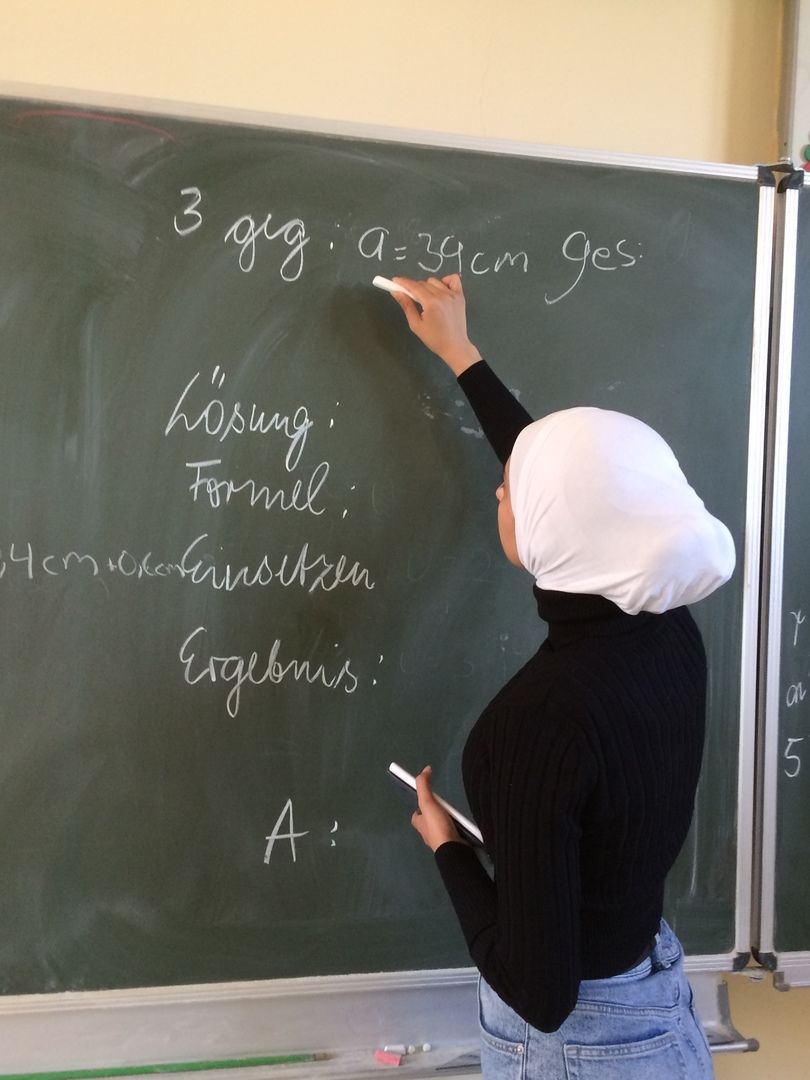 3 geg: a=39cm ges:
Lösung:
Formel:
4cm+0,6cm
Einsetzen
Ergebnis:
A:
5